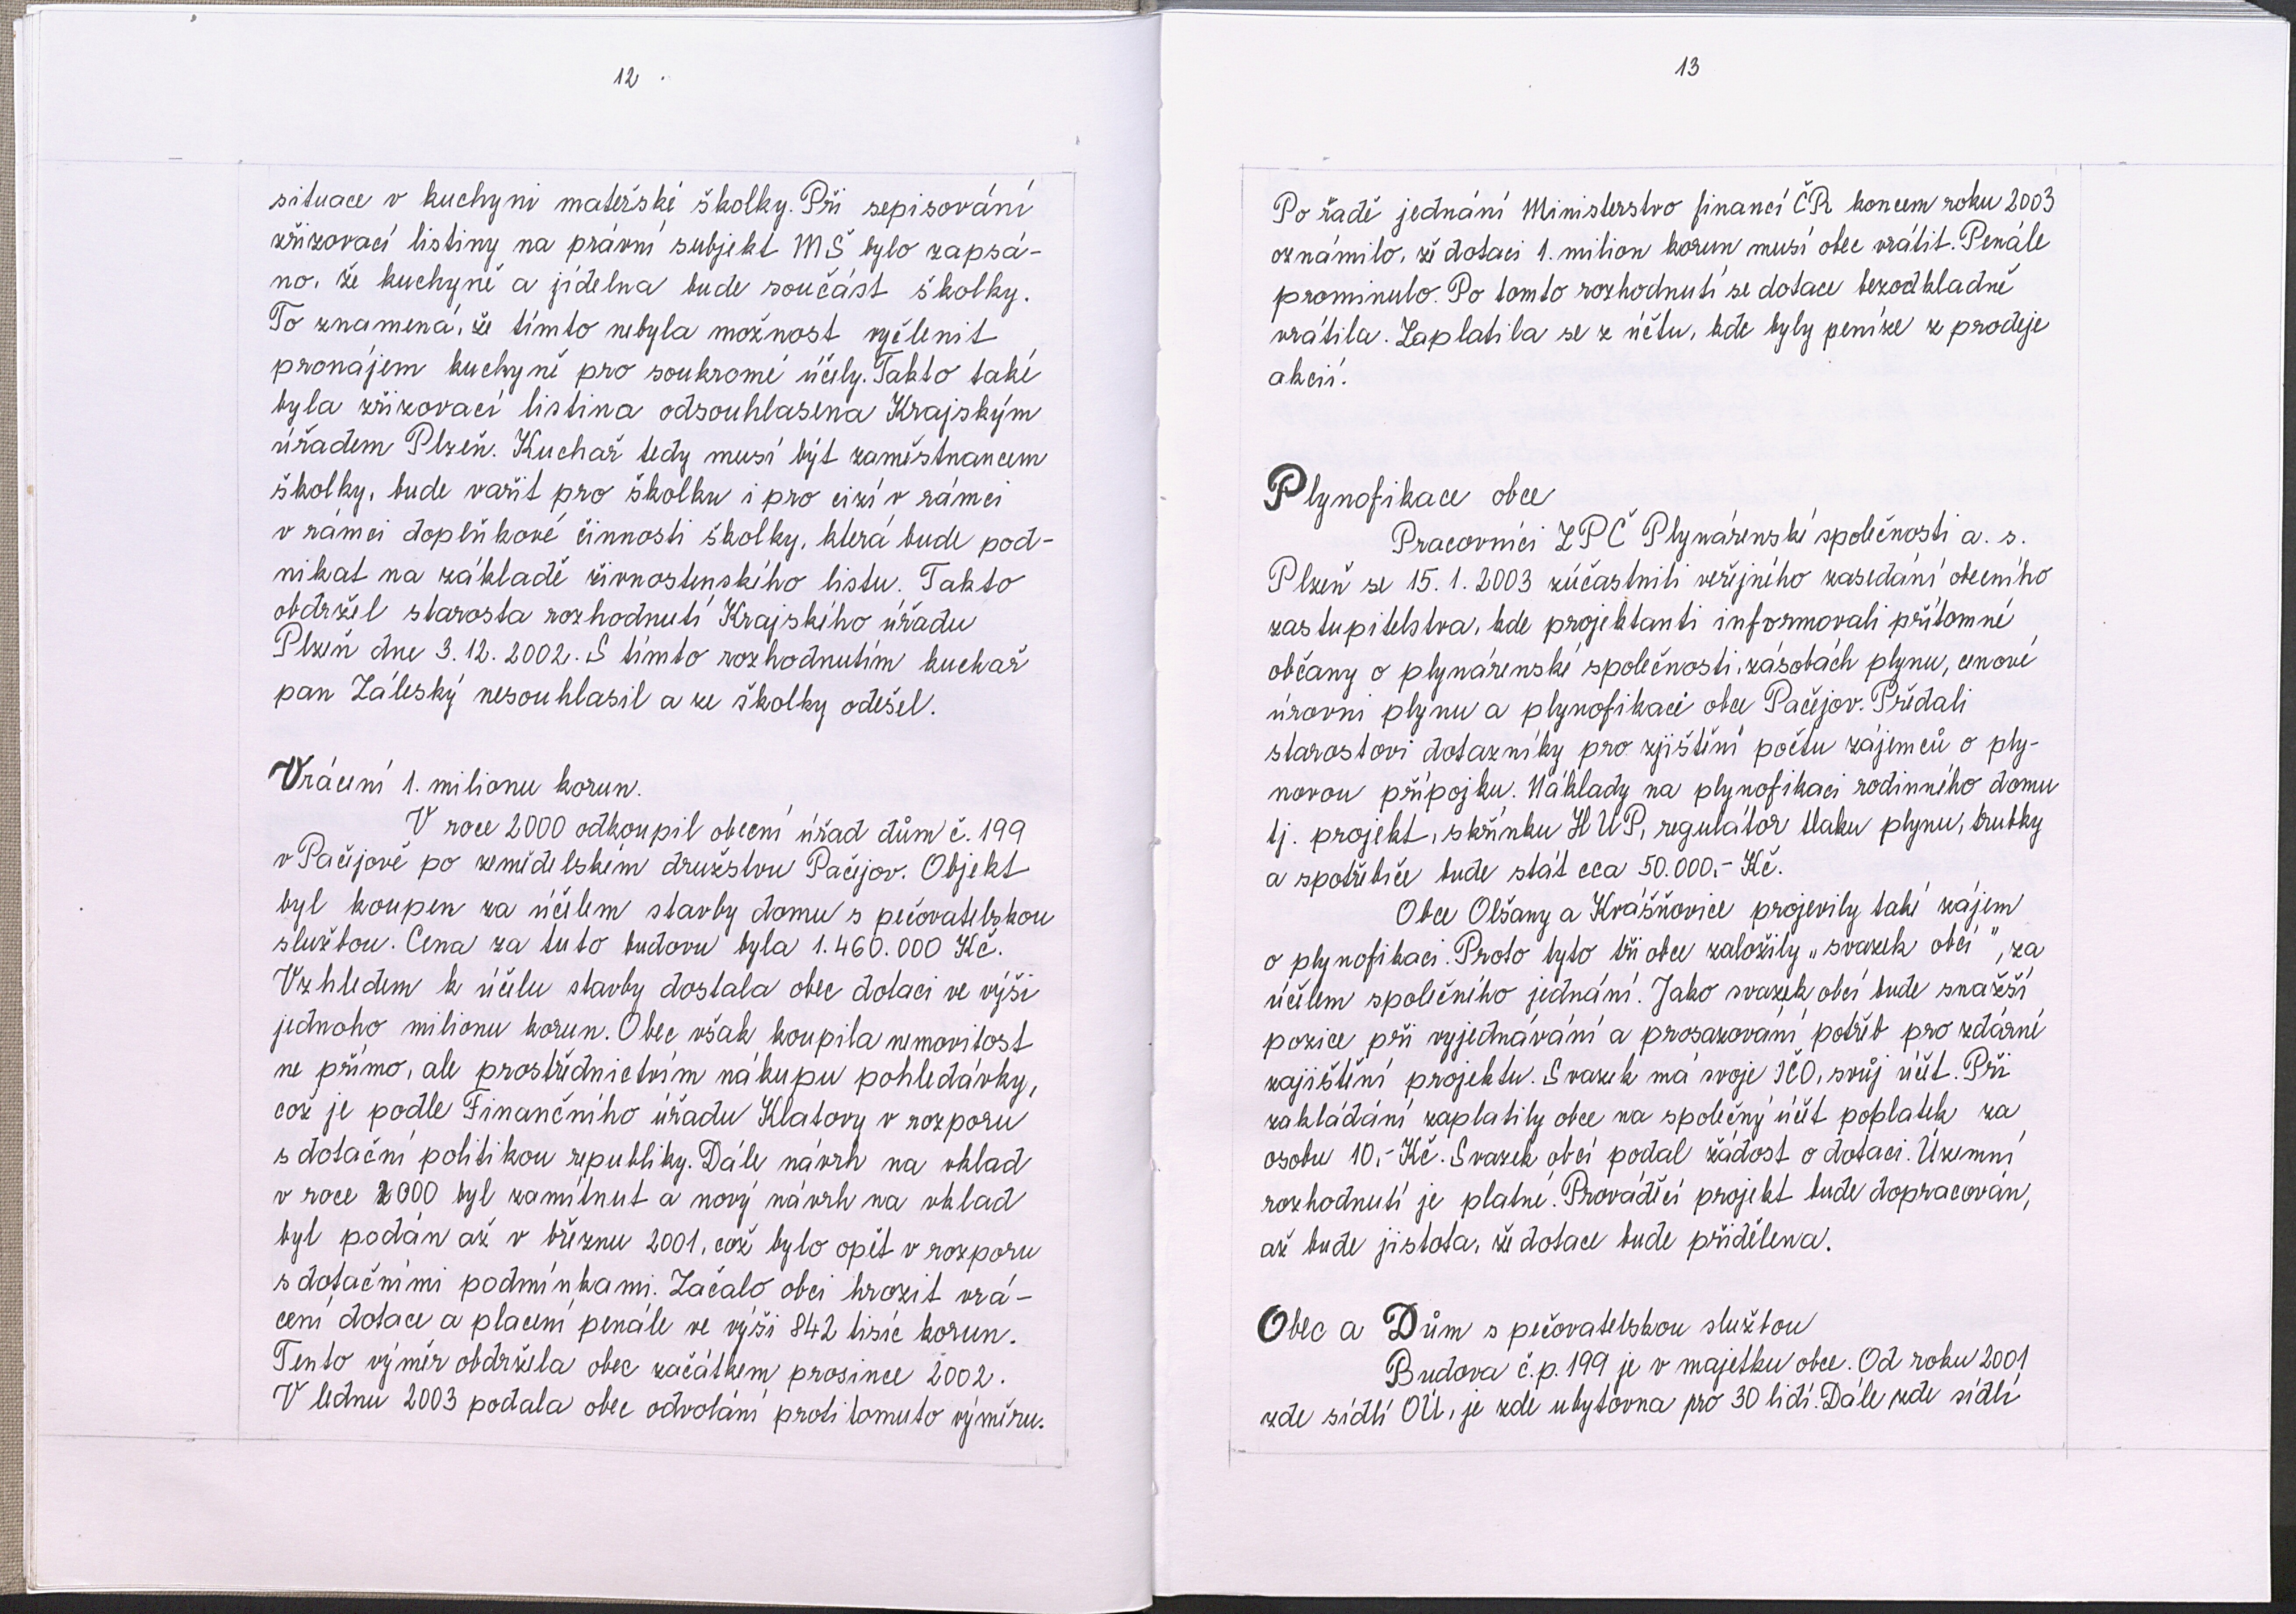 12
situace v kuchyni mateřské školky. Při sepisování
zřizovací listiny na právní subjekt MŠ bylo zapsá-
no, že kuchyně a jídelna bude součást školky.
To znamená, že tímto nebyla možnost vyčlenit
pronájem kuchyně pro soukromé účely. Takto také
byla zřizovací listina odsouhlasena Krajským
úřadem Plzeň. Kuchař tedy musí být zaměstnancem
školky, bude vařit pro školku i pro cizí v rámci
v rámci doplňkové činnosti školky, která bude pod-
nikat na základě živnostenského listu. Takto
obdržel starosta rozhodnutí Krajského úřadu
Plzeň dne 3. 12. 2002. S tímto rozhodnutím kuchař
pan Záleský nesouhlasil a ze školky odešel.
Vrácení 1. milionu korun.
V roce 2000 odkoupil obecní úřad dům č. 199
v Pačejově po zemědělském družstvu Pačejov. Objekt
byl koupen za účelem stavby domu s pečovatelskou
službou. Cena za tuto budovu byla 1.460.000 Kč.
Vzhledem k účelu stavby dostala obec dotaci ve výši
jednoho milionu korun. Obec však koupila nemovitost
ne přímo, ale prostřednictvím nákupu pohledávky,
což je podle Finančního úřadu Klatovy v rozporu
s dotační politikou republiky. Dále návrh na vklad
v roce 2000 byl zamítnut a nový návrh na vklad
byl podán až v březnu 2001, což bylo opět v rozporu
s dotačními podmínkami. Začalo obci hrozit vrá-
cení dotace a placení penále ve výši 842 tisíc korun.
Tento výměr obdržela obec začátkem prosince 2002.
V lednu 2003 podala obec odvolání proti tomuto výměru.
13
Po řadě jednání Ministerstvo financí ČR koncem roku 2003
oznámilo, že dotaci 1. milion korun musí obec vrátit. Penále
prominulo. Po tomto rozhodnutí se dotace bezodkladně
vrátila. Zaplatila se z účtu, kde byly peníze z prodeje
akcií.
Plynofikace obce
Pracovníci ZPČ Plynárenské společnosti a. s.
Plzeň se 15. 1. 2003 zúčastnili veřejného zasedání obecního
zastupitelstva, kde projektanti informovali přítomné
občany o plynárenské společnosti, zásobách plynu, cenové
úrovni plynu a plynofikaci obce Pačejov. Předali
starostovi dotazníky pro zjištění počtu zájemců o ply-
novou přípojku. Náklady na plynofikaci rodinného domu
tj. projekt, skřínku HUP, regulátor tlaku plynu, trubky
a spotřebiče bude stát cca 50.000,- Kč.
Obce Olšany a Kvášňovice projevily také zájem
o plynofikaci. Proto tyto tři obce založily „svazek obcí", za
účelem společného jednání. Jako svazek obcí bude snažší
pozice při vyjednávání a prosazování potřeb pro zdárné
zajištění projektu. Svazek má svoje IČO, svůj účet. Při
zakládání zaplatily obce na společný účet poplatek za
osobu 10,- Kč. Svazek obcí podal žádost o dotaci. Územní
rozhodnutí je platné. Prováděcí projekt bude dopracován,
až bude jistota, že dotace bude přidělena.
Obec a Dům s pečovatelskou službou
Budova č.p. 199 je v majetku obce. Od roku 2001
zde sídlí OÚ, je zde ubytovna pro 30 lidí. Dále zde sídlí